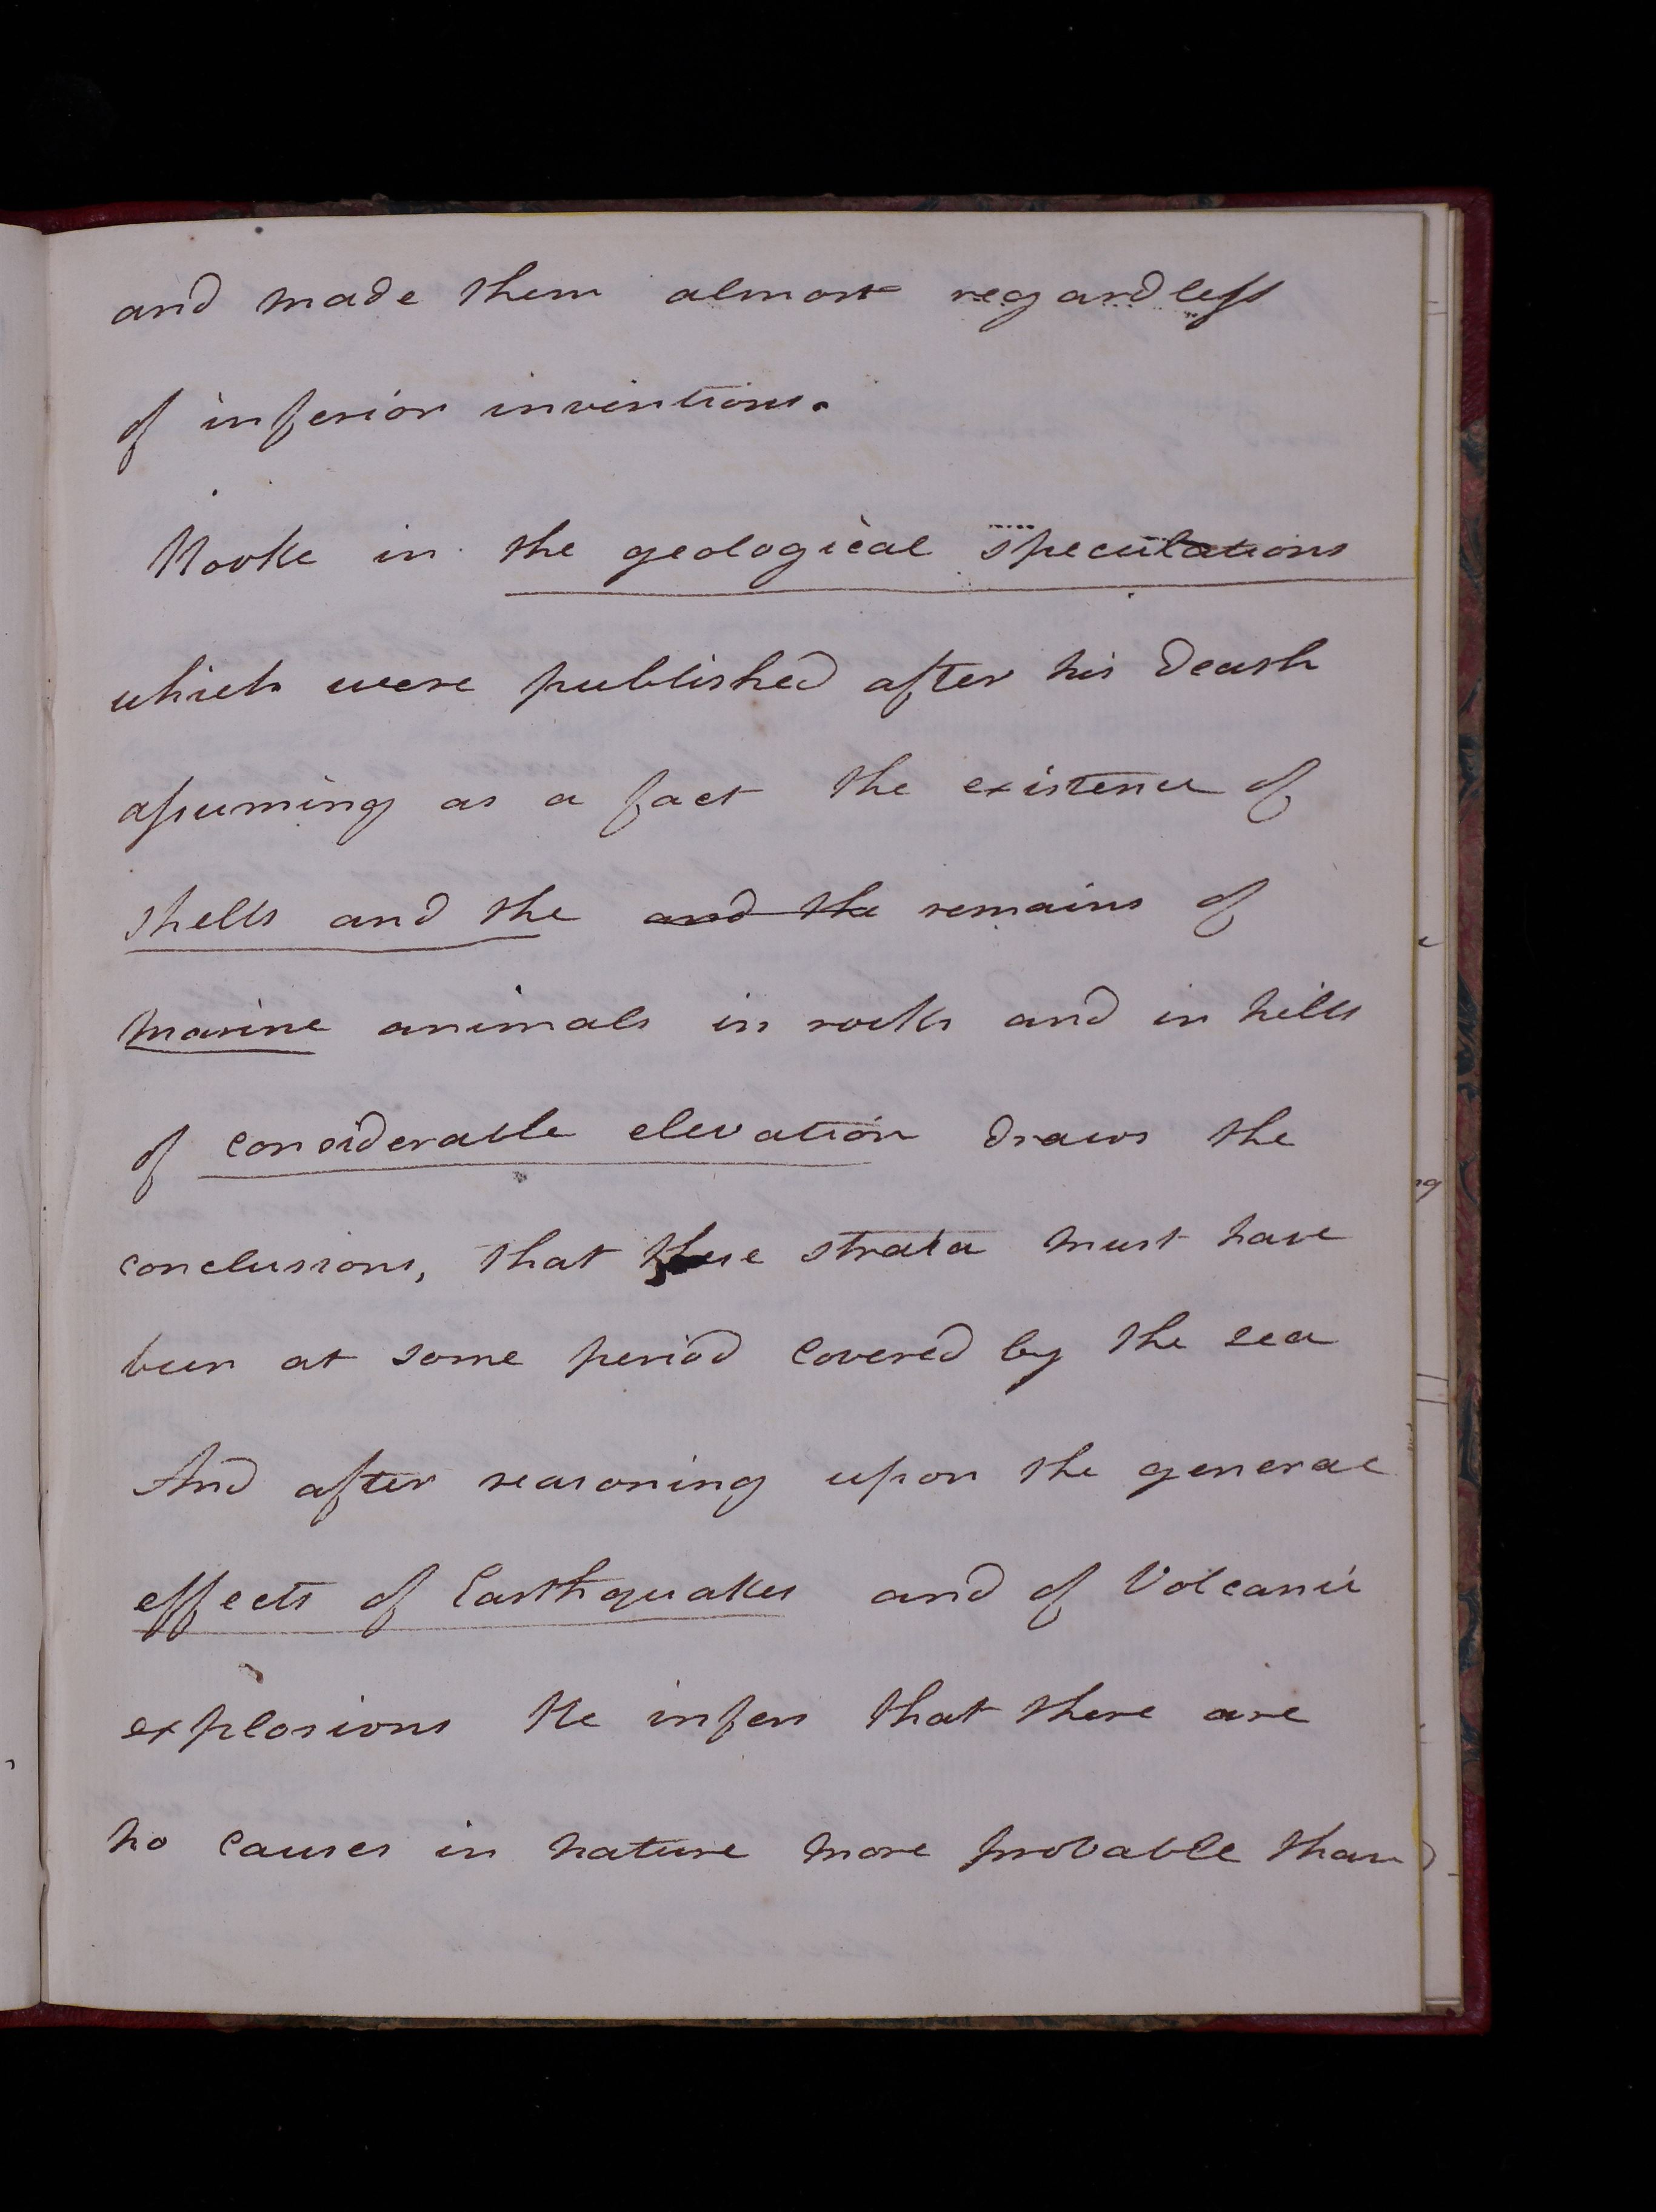 and made them almost regardless
of inferior inventions.
Hooke in the geological speculations
which were published after his death
assuming as a fact the existence of
shells and the and the remains of
marine animals in rocks and in hills
of considerable elevation draws the
conclusions, that these strata must have
been at some period covered by the sea
And after reasoning upon the general
effects of Earthquakes and of Volcanic
explosions He infers that there are
no causes in nature more probable than